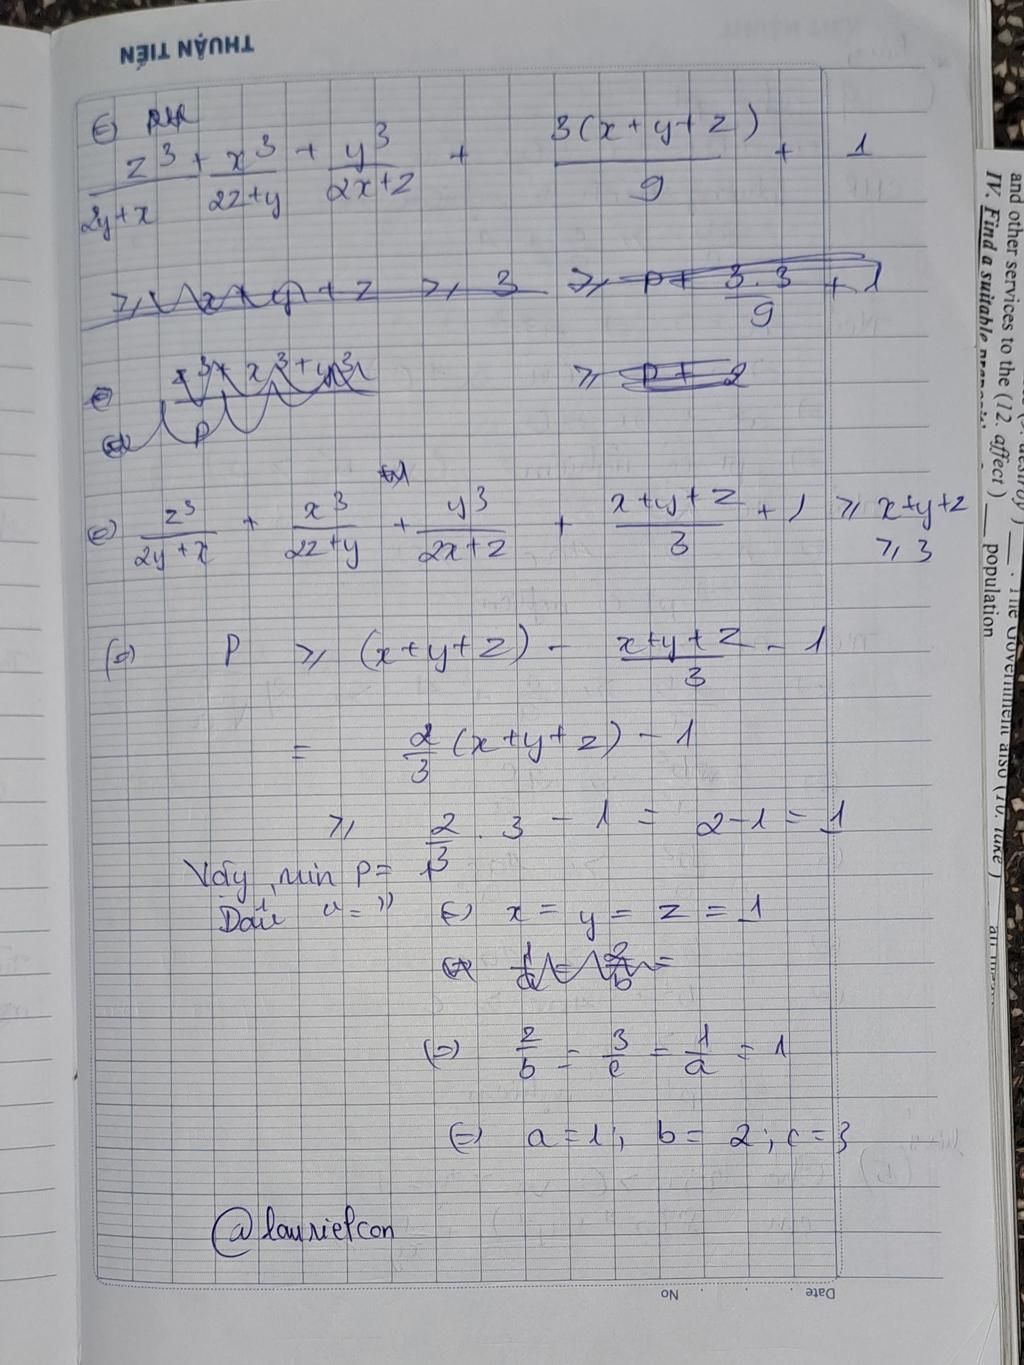 THUẬN TIẾN
⇔ z³/(2y+x) + x³/(2z+y) + y³/(2x+z) + 3(x+y+z)/9 + 1
≥ x+y+z ≥ 3 ≥ P + 3.3/9 + 1
z³+ x³+y³ ≥ P + 2
P
⇔ z³/(2y+x) + x³/(2z+y) + y³/(2x+z) + (x+y+z)/3 + 1 ≥ x+y+z
≥ 3
⇔ P ≥ (x+y+z) - (x+y+z)/3 - 1
= 2/3 (x+y+z) - 1
≥ 2/3 . 3 - 1 = 2-1 = 1
Vậy min P = 1
Dấu "=" ⇔ x = y = z = 1
⇔ 2/b = 3/c = 1/a = 1
⇔ a=1; b=2; c=3
@laurielcon
Date No
and other services to the (12. affect) ___ population
IV. Find a suitable
. The Government also (10. take)